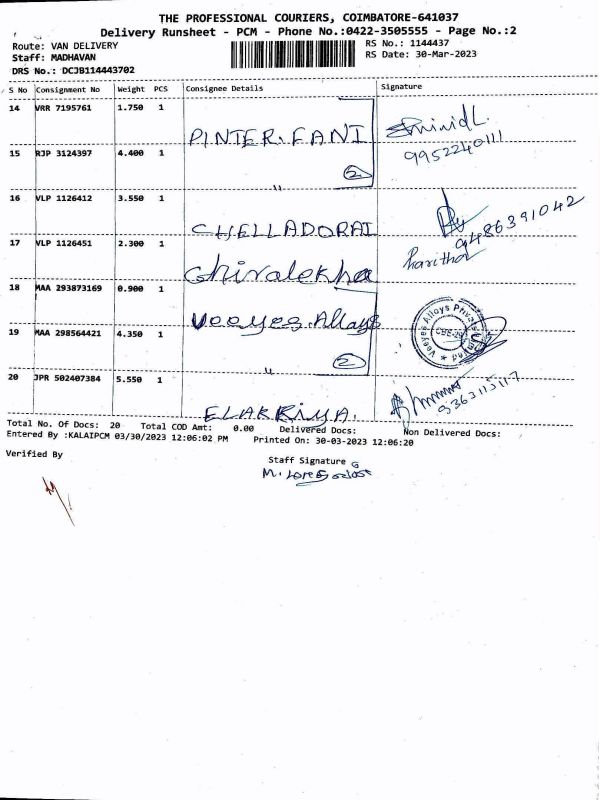 THE PROFESSIONAL COURIERS, COIMBATORE-641037
Delivery Runsheet - PCM - Phone No.:0422-3505555 - Page No.:2
Route: VAN DELIVERY RS No.: 1144437
Staff: MADHAVAN RS Date: 30-Mar-2023
DRS No.: DCJB114443702
S No Consignment No Weight PCS Consignee Details Signature
14 VRR 7195761 1.750 1
PINTER.FANI
9952240111
15 RJP 3124397 4.400 1
2
"
16 VLP 1126412 3.550 1
CHELLADORAI
9486391042
17 VLP 1126451 2.300 1
Haritha
18 MAA 293873169 0.900 1
Veeyes Alloys
Veeyes Alloys Private Limited
19 MAA 298564421 4.350 1
2
"
20 JPR 502407384 5.550 1
ELAKKIYA.
Total No. Of Docs: 20 Total COD Amt: 0.00 Delivered Docs: Non Delivered Docs:
Entered By :KALAIPCM 03/30/2023 12:06:02 PM Printed On: 30-03-2023 12:06:20
Verified By
Staff Signature